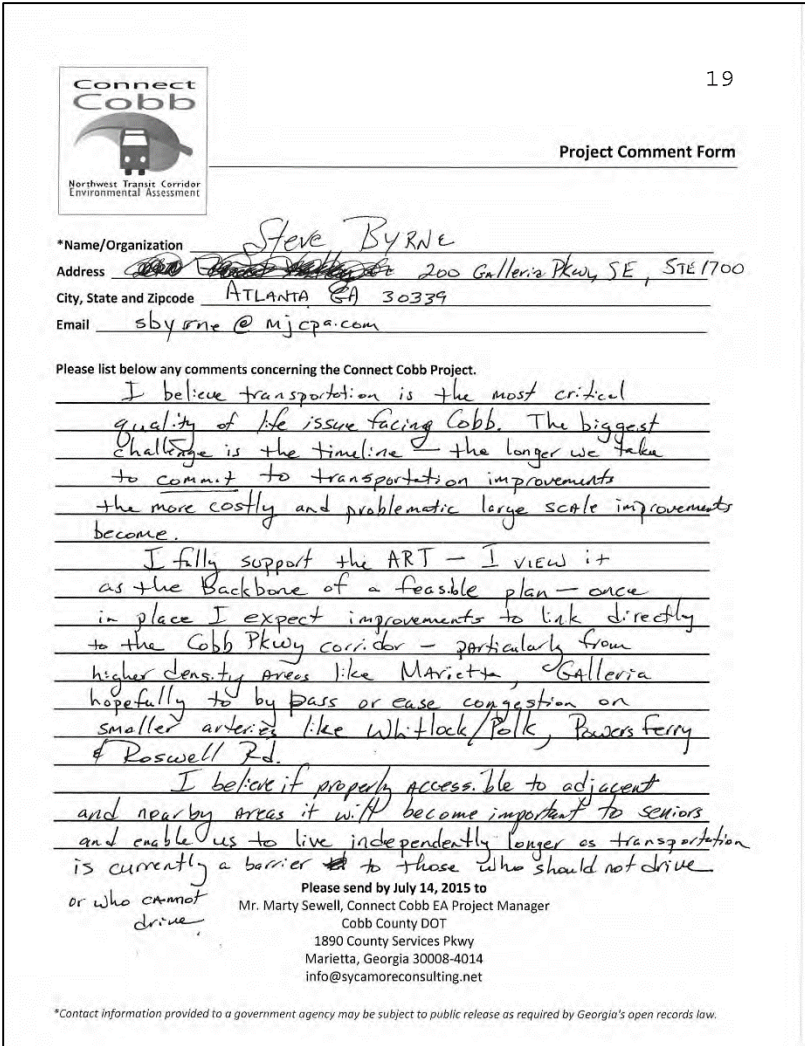 19
Connect
Cobb
Northwest Transit Corridor
Environmental Assessment
Project Comment Form
*Name/Organization Steve Byrne
Address 200 Galleria Pkwy, SE, STE 1700
City, State and Zipcode ATLANTA GA 30339
Email sbyrne@mjcpa.com
Please list below any comments concerning the Connect Cobb Project.
I believe transportation is the most critical
quality of life issue facing Cobb. The biggest
challenge is the timeline — the longer we take
to commit to transportation improvements
the more costly and problematic large scale improvements
become.
I fully support the ART — I view it
as the Backbone of a feasible plan — once
in place I expect improvements to link directly
to the Cobb Pkwy corridor — particularly from
higher density areas like Marietta, Galleria
hopefully to by pass or ease congestion on
smaller arteries like Whitlock/Polk, Powers Ferry
& Roswell Rd.
I believe if properly accessible to adjacent
and nearby areas it will become important to seniors
and enable us to live independently longer as transportation
is currently a barrier to those who should not drive
or who cannot
drive.
Please send by July 14, 2015 to
Mr. Marty Sewell, Connect Cobb EA Project Manager
Cobb County DOT
1890 County Services Pkwy
Marietta, Georgia 30008-4014
info@sycamoreconsulting.net
*Contact information provided to a government agency may be subject to public release as required by Georgia's open records law.